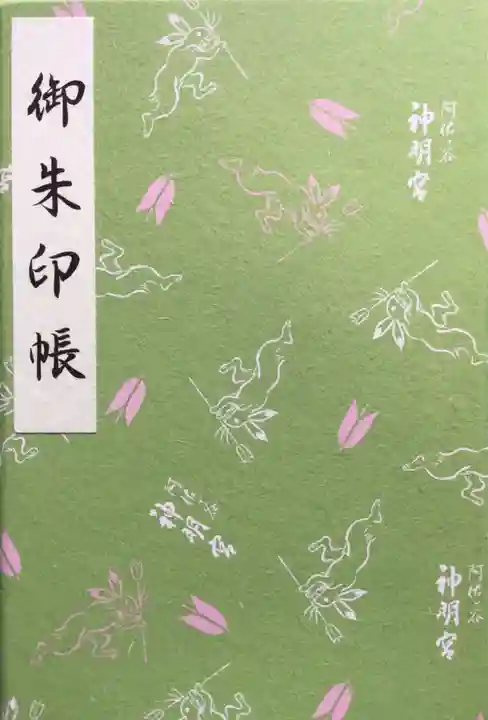 御朱印帳
阿佐ヶ谷
神明宮
阿佐ヶ谷
神明宮
阿佐ヶ谷
神明宮